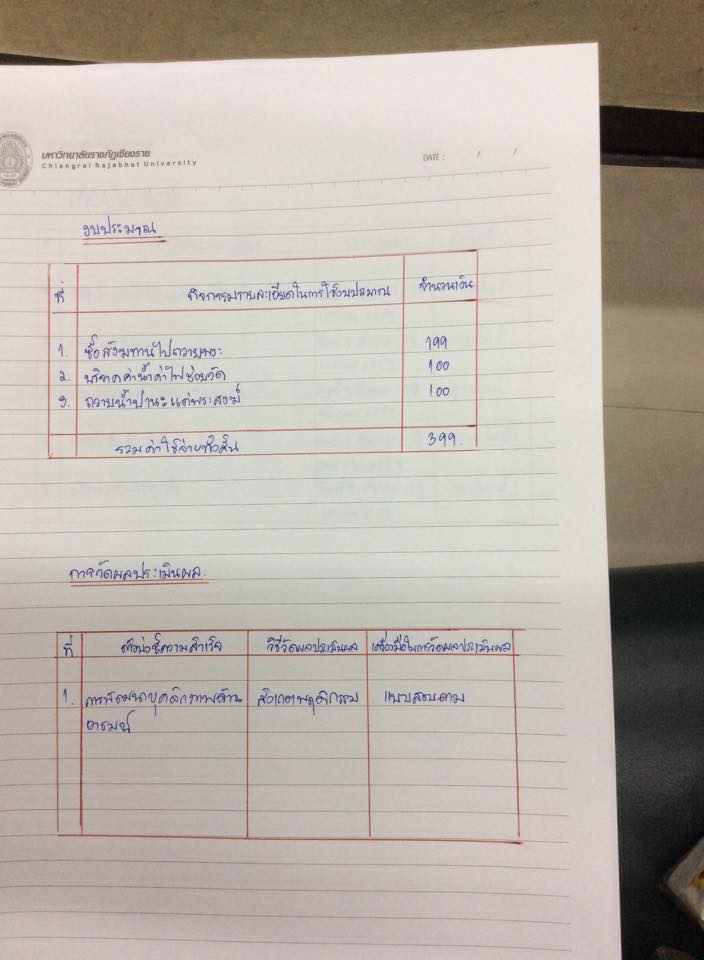 มหาวิทยาลัยราชภัฏเชียงราย
Chiangrai Rajabhat University
DATE : / /
งบประมาณ
ที่ กิจกรรมรายละเอียดในการใช้งบประมาณ จำนวนเงิน
1. ซื้อสังฆทานไปถวายพระ 199
2. บริจาคค่าน้ำค่าไฟช่วยวัด 100
3. ถวายน้ำปานะแด่พระสงฆ์ 100
รวมค่าใช้จ่ายทั้งสิ้น 399.
การวัดผลประเมินผล.
ที่ ตัวบ่งชี้ความสำเร็จ วิธีวัดผลประเมินผล เครื่องมือในการวัดผลประเมินผล
1. การพัฒนาบุคลิกภาพด้าน สังเกตพฤติกรรม แบบสอบถาม
อารมณ์